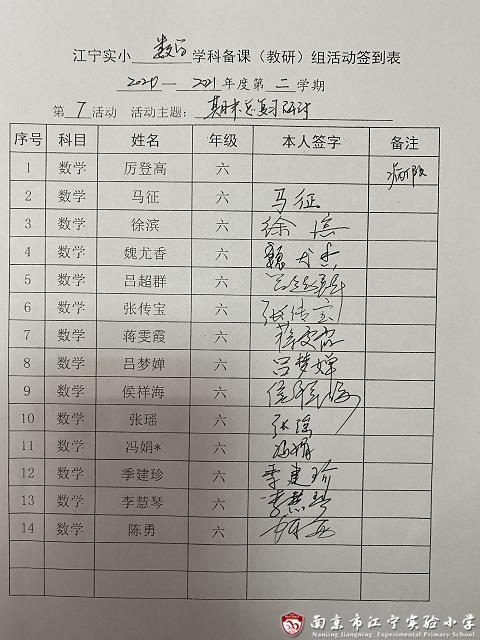 江宁实小 数学 学科备课（教研）组活动签到表
2020—2021年度第 二 学期
第 7 活动 活动主题：期末总复习研讨
序号 科目 姓名 年级 本人签字 备注
1 数学 厉登高 六 病假
2 数学 马征 六 马征
3 数学 徐滨 六 徐滨
4 数学 魏尤香 六 魏尤香
5 数学 吕超群 六 吕超群
6 数学 张传宝 六 张传宝
7 数学 蒋雯霞 六 蒋雯霞
8 数学 吕梦婵 六 吕梦婵
9 数学 侯祥海 六 侯祥海
10 数学 张瑶 六 张瑶
11 数学 冯娟* 六 冯娟
12 数学 季建珍 六 季建珍
13 数学 李慧琴 六 李慧琴
14 数学 陈勇 六 陈勇
南京市江宁实验小学
Nanjing Jiangning Experimental Primary School